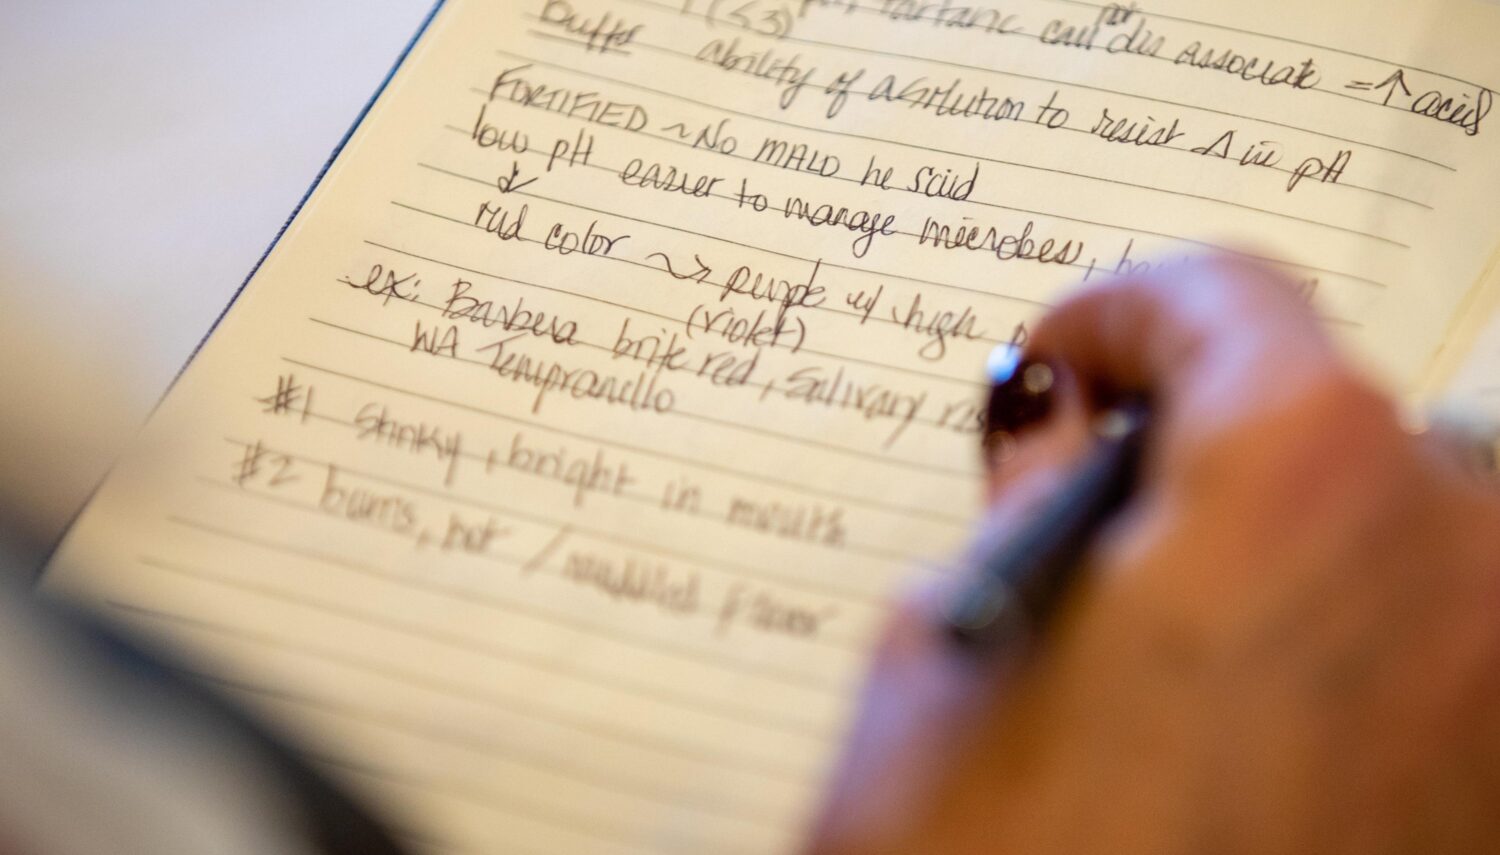 (<3) tartaric can not dis associate = ↑ acid
buffer ability of a solution to resist Δ in pH
FORTIFIED ~ NO MALO he said
low pH easier to manage microbes,
↓
red color → purple w/ high
(violet)
ex: Barbera brite red, salivary
WA Tempranillo
#1 stinky, bright in mouth
#2 burns, hot /